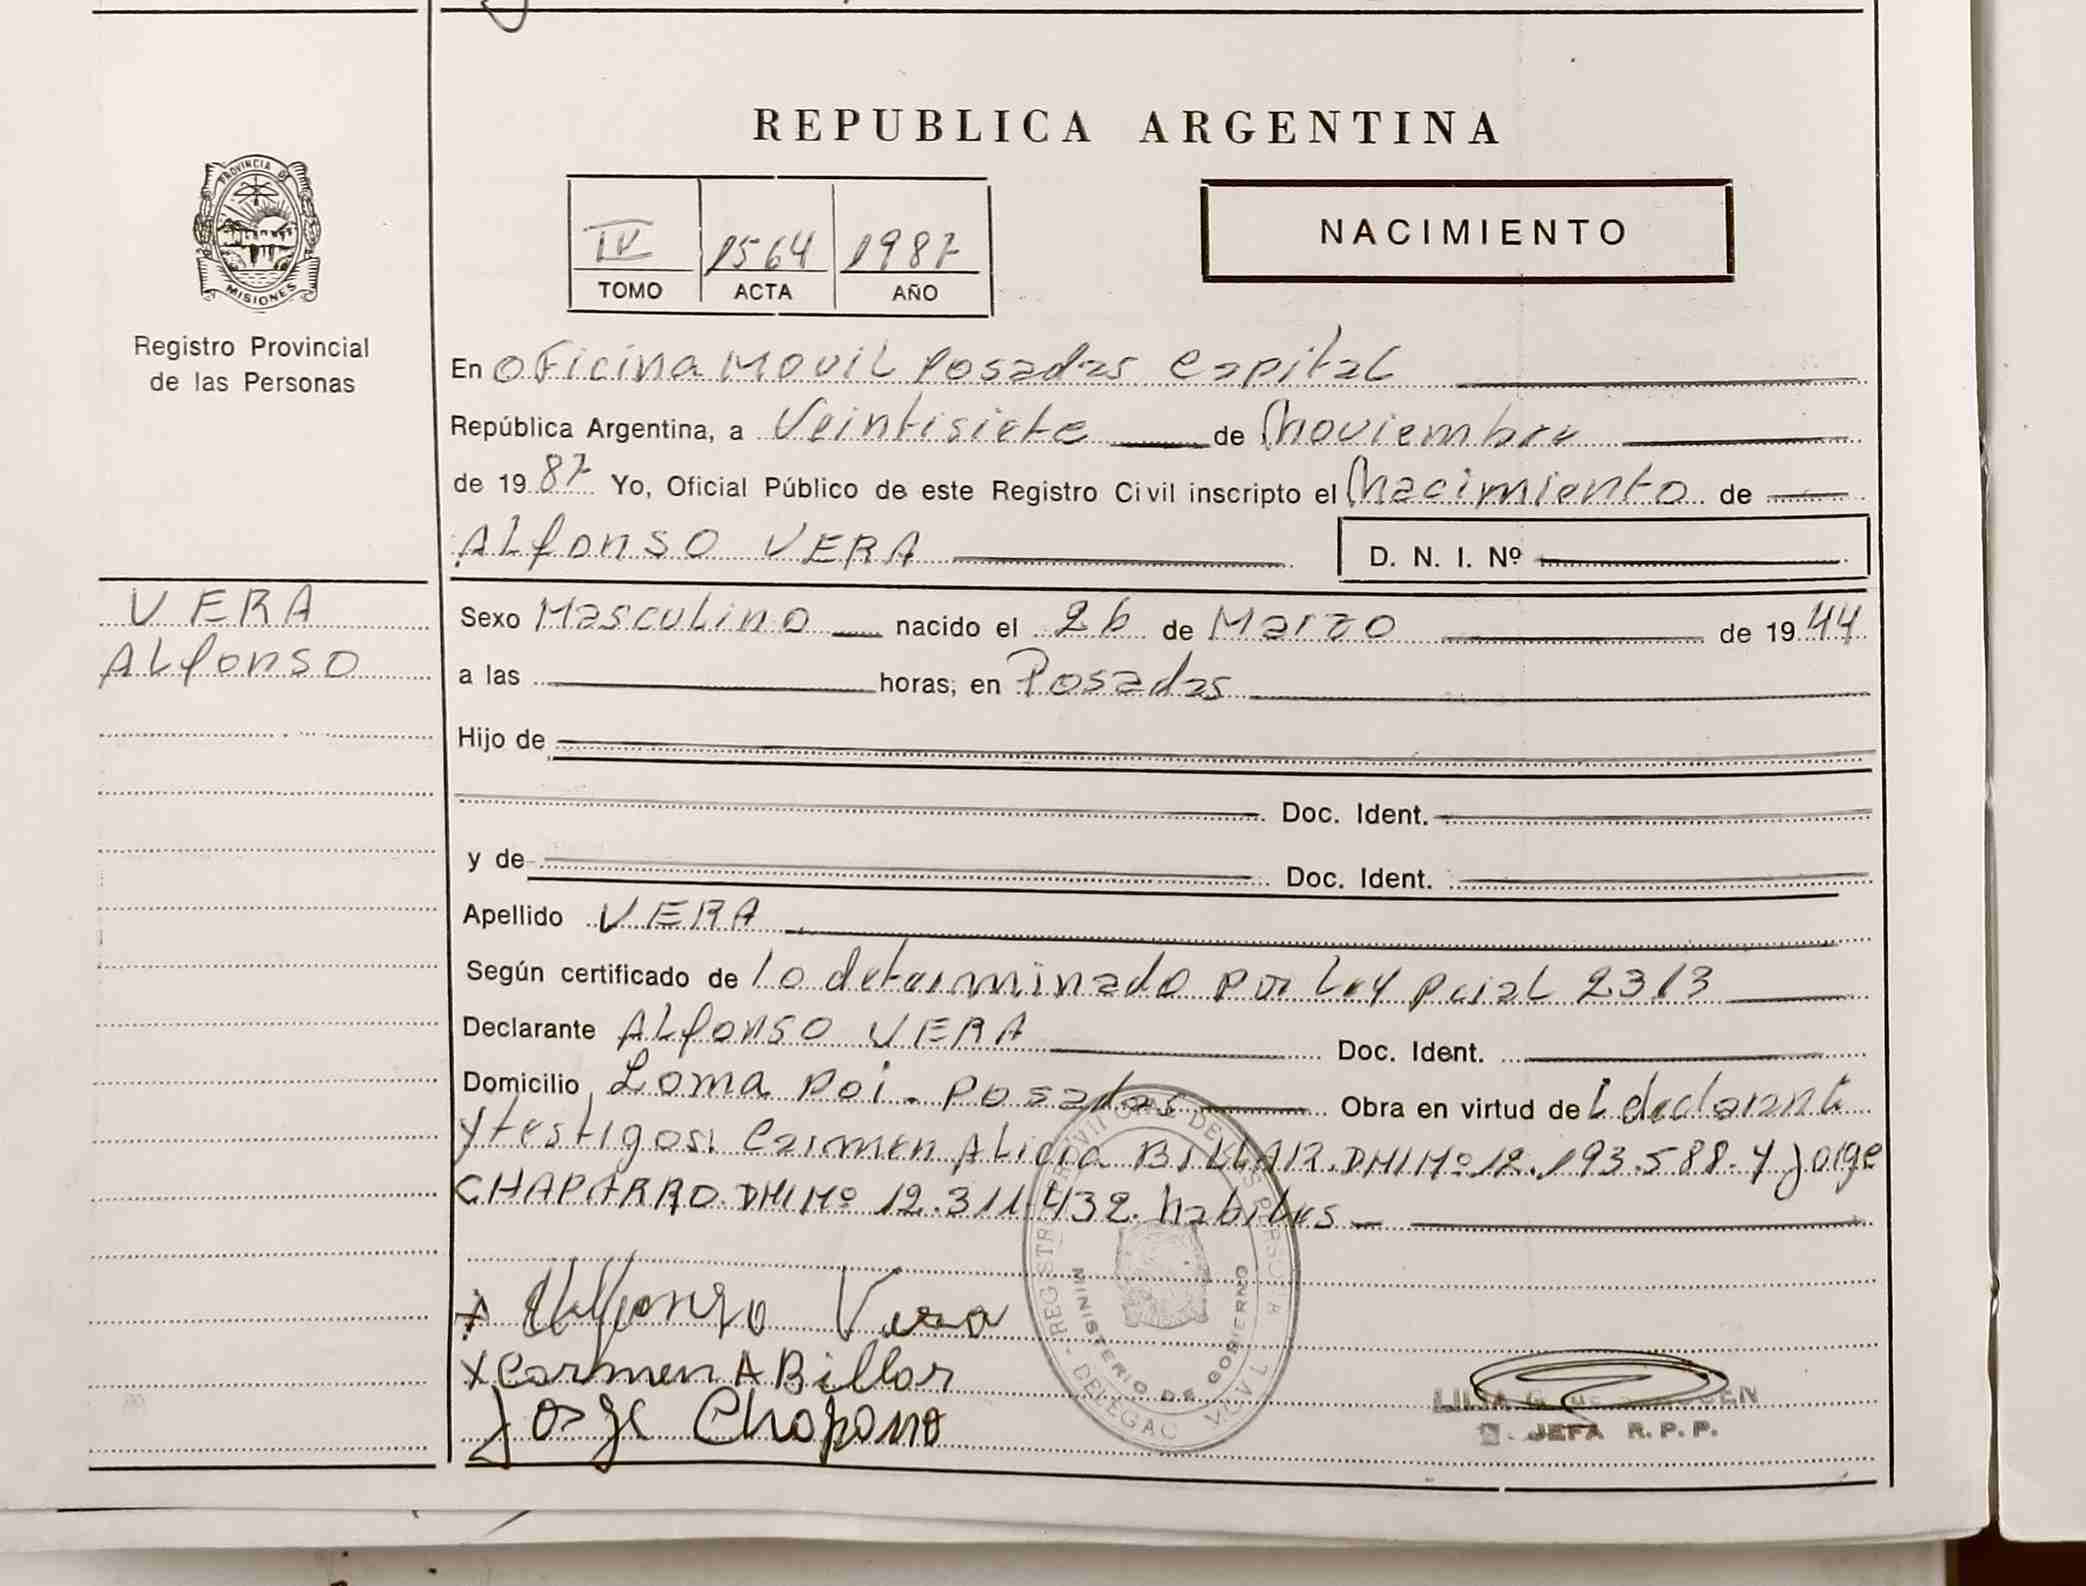 REPUBLICA ARGENTINA
PROVINCIA DE
MISIONES
Registro Provincial
de las Personas
IV 1564 1987
TOMO ACTA AÑO
NACIMIENTO
En oficina movil Posadas capital
República Argentina, a Veintisiete de Noviembre
de 1987 Yo, Oficial Público de este Registro Civil inscripto el Nacimiento de
Alfonso VERA D. N. I. Nº
VERA
Alfonso
Sexo Masculino nacido el 26 de Marzo de 1944
a las horas, en Posadas
Hijo de
Doc. Ident.
y de Doc. Ident.
Apellido VERA
Según certificado de lo determinado por Ley pcial 2313
Declarante Alfonso VERA Doc. Ident.
Domicilio Loma poi. Posadas Obra en virtud de
y testigos: Carmen Alicia BILLAR. DNI Nº 12.193.588. y Jorge
CHAPARRO. DNI Nº 12.311.432. habiles
x Alfonso Vera
x Carmen A Billar
Jorge Chaparro
MINISTERIO DE GOBIERNO
JEFA R.P.P.